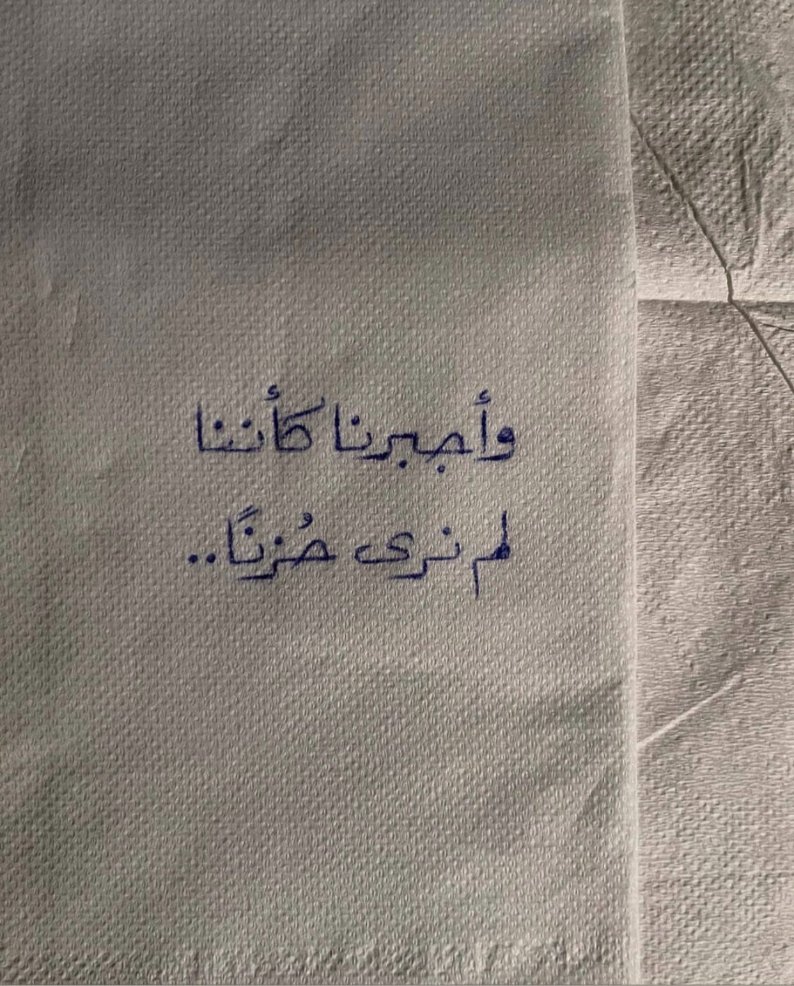 وأجبرنا كأننا
لم نرى حُزنًا..